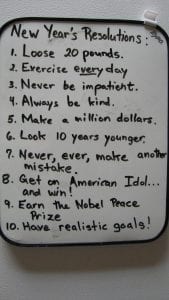 New Year's Resolutions:
1. Loose 20 pounds.
2. Exercise every day
3. Never be impatient.
4. Always be kind.
5. Make a million dollars.
6. Look 10 years younger.
7. Never, ever, make another
mistake.
8. Get on American Idol...
and win!
9. Earn the Nobel Peace
Prize
10. Have realistic goals!